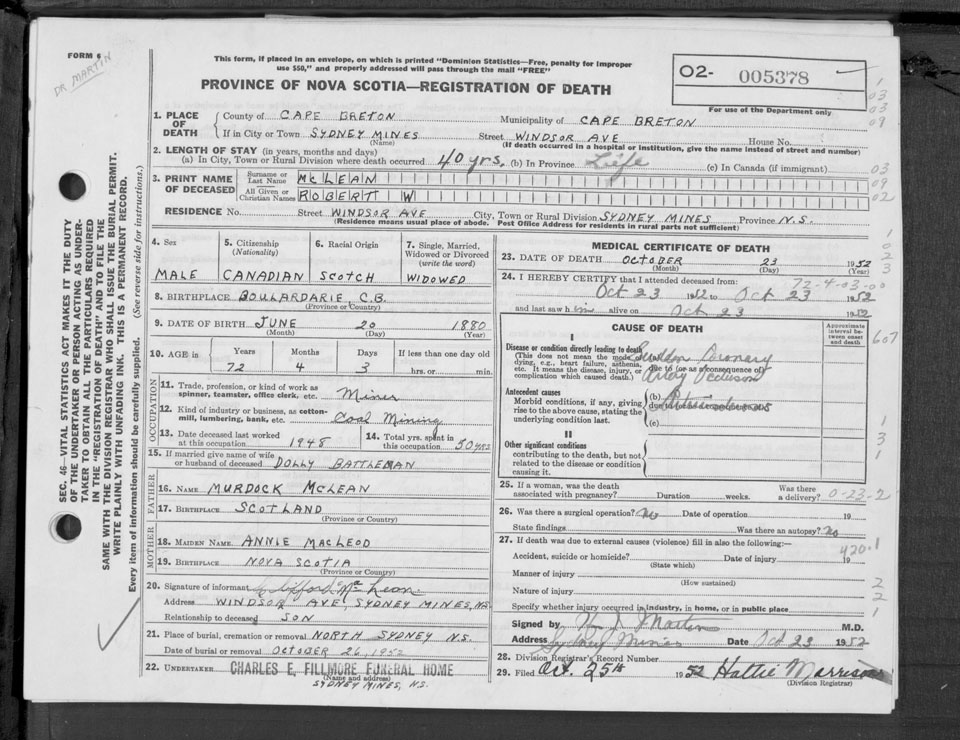 FORM 6
DR MARTIN
This form, if placed in an envelope, on which is printed "Dominion Statistics—Free, penalty for improper
use $50," and properly addressed will pass through the mail "FREE"
PROVINCE OF NOVA SCOTIA—REGISTRATION OF DEATH
O2- 005378
For use of the Department only
1. PLACE OF DEATH
County of CAPE BRETON Municipality of CAPE BRETON
If in City or Town SYDNEY MINES Street WINDSOR AVE House No.
(Name) (If death occurred in a hospital or institution, give the name instead of street and number)
2. LENGTH OF STAY (in years, months and days)
(a) In City, Town or Rural Division where death occurred 40 yrs. (b) In Province Life (c) In Canada (if immigrant)
3. PRINT NAME OF DECEASED
Surname or Last Name McLEAN
All Given or Christian Names ROBERT W
RESIDENCE No. Street WINDSOR AVE City, Town or Rural Division SYDNEY MINES Province N.S.
(Residence means usual place of abode. Post Office Address for residents in rural parts not sufficient)
4. Sex
MALE
5. Citizenship (Nationality)
CANADIAN
6. Racial Origin
SCOTCH
7. Single, Married, Widowed or Divorced (write the word)
WIDOWED
8. BIRTHPLACE BOULARDARIE, C.B.
9. DATE OF BIRTH JUNE 20 1880
(Month) (Day) (Year)
10. AGE in Years Months Days If less than one day old
72 4 3 hrs. or min.
OCCUPATION
11. Trade, profession, or kind of work as spinner, teamster, office clerk, etc. Miner
12. Kind of industry or business, as cotton-mill, lumbering, bank, etc. Coal Mining
13. Date deceased last worked at this occupation 1948
14. Total yrs. spent in this occupation 50 yrs
15. If married give name of wife or husband of deceased DOLLY BATTLEMAN
FATHER
16. NAME MURDOCK McLEAN
17. BIRTHPLACE SCOTLAND
(Province or Country)
MOTHER
18. MAIDEN NAME ANNIE MACLEOD
19. BIRTHPLACE NOVA SCOTIA
(Province or Country)
20. Signature of informant Clifford McLean
Address WINDSOR AVE, SYDNEY MINES, N.S.
Relationship to deceased SON
21. Place of burial, cremation or removal NORTH SYDNEY N.S.
Date of burial or removal OCTOBER 26, 1952
22. UNDERTAKER CHARLES E. FILLMORE FUNERAL HOME
(Name and address)
SYDNEY MINES, N.S.
MEDICAL CERTIFICATE OF DEATH
23. DATE OF DEATH OCTOBER 23 1952
(Month) (Day) (Year)
72-4-03-00
24. I HEREBY CERTIFY that I attended deceased from:
Oct 23 1952 to Oct 23 1952
and last saw him alive on Oct 23 1952
CAUSE OF DEATH
Approximate interval between onset and death
I
Disease or condition directly leading to death
(This does not mean the mode of dying, e.g., heart failure, asthenia, etc. It means the disease, injury, or complication which caused death.)
Sudden Coronary
due to (or as a consequence of)
Antecedent causes
Morbid conditions, if any, giving rise to the above cause, stating the underlying condition last.
(b)
(c)
II
Other significant conditions
contributing to the death, but not related to the disease or condition causing it.
25. If a woman, was the death associated with pregnancy? Duration weeks. Was there a delivery? 0-23-2
26. Was there a surgical operation? No Date of operation 19
State findings Was there an autopsy? No
27. If death was due to external causes (violence) fill in also the following:
420.1
Accident, suicide or homicide? Date of injury 19
(State which)
Manner of injury
(How sustained)
Nature of injury
Specify whether injury occurred in industry, in home, or in public place
Signed by Wm J Martin M.D.
Address Sydney Mines Date Oct 23 1952
28. Division Registrar's Record Number
29. Filed Oct. 25th 1952 Hattie Morrison
(Division Registrar)
SEC. 46—VITAL STATISTICS ACT MAKES IT THE DUTY
OF THE UNDERTAKER OR PERSON ACTING AS UNDER-
TAKER TO OBTAIN ALL THE PARTICULARS REQUIRED
IN THE "REGISTRATION OF DEATH" AND TO FILE THE
SAME WITH THE DIVISION REGISTRAR WHO SHALL ISSUE THE BURIAL PERMIT.
WRITE PLAINLY WITH UNFADING INK. THIS IS A PERMANENT RECORD.
Every item of information should be carefully supplied. (See reverse side for instructions.)
1
03
03
09
03
09
02
1
0
2
3
607
1
3
1
2
2
1